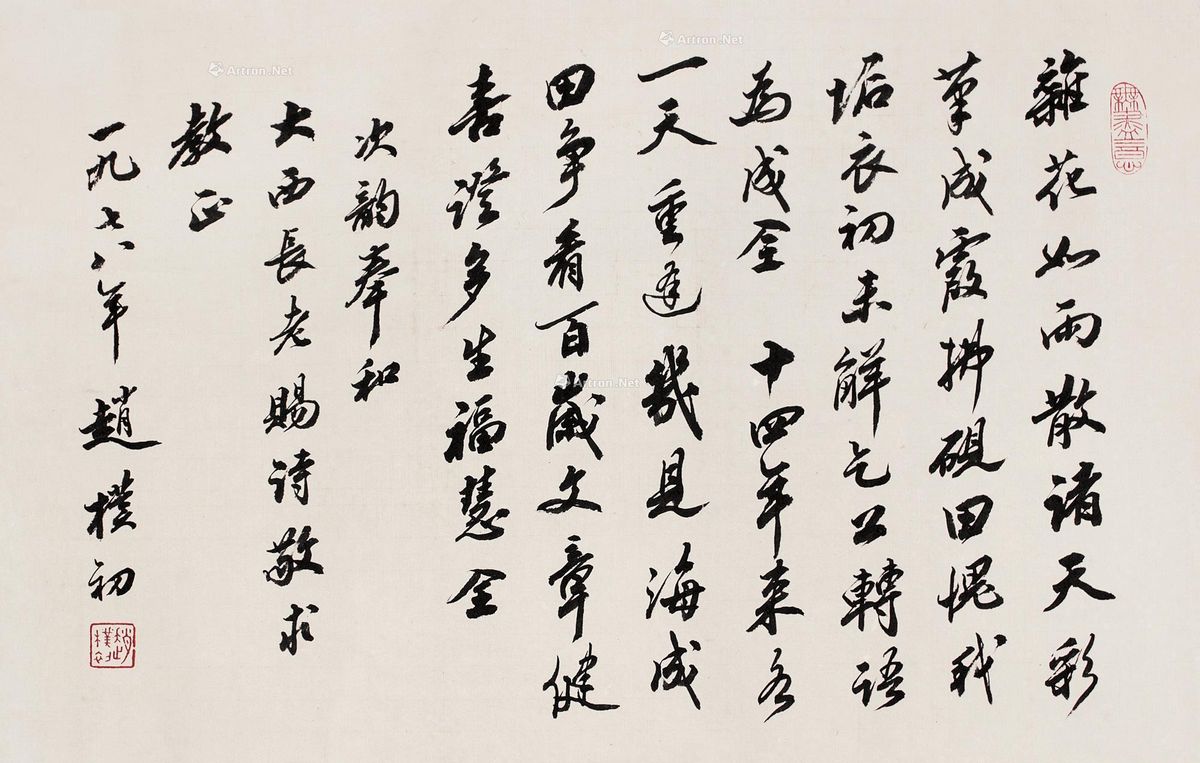 雜花如雨散諸天彩
筆成霞拂硯田愧我
垢衣初未解乞公轉語
為成全 十四年来各
一天重逢幾見海成
田爭看百歲文章健
喜證多生福慧全
次韵奉和
大西長老賜诗敬求
教正
一九七八年 趙樸初
無盡意
趙樸初
Artron.Net
Artron.Net
Artron.Net